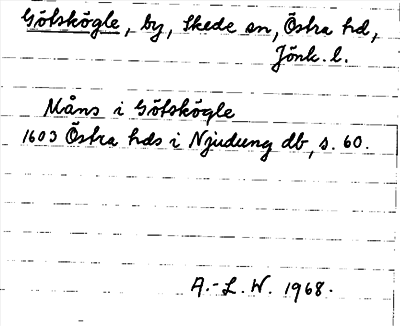 Götskögle, by, Skede sn, Östra hd,
Jönk. l.
Måns i Götskögle
1603 Östra hds i Njudung db, s. 60.
A.-L. W. 1968.